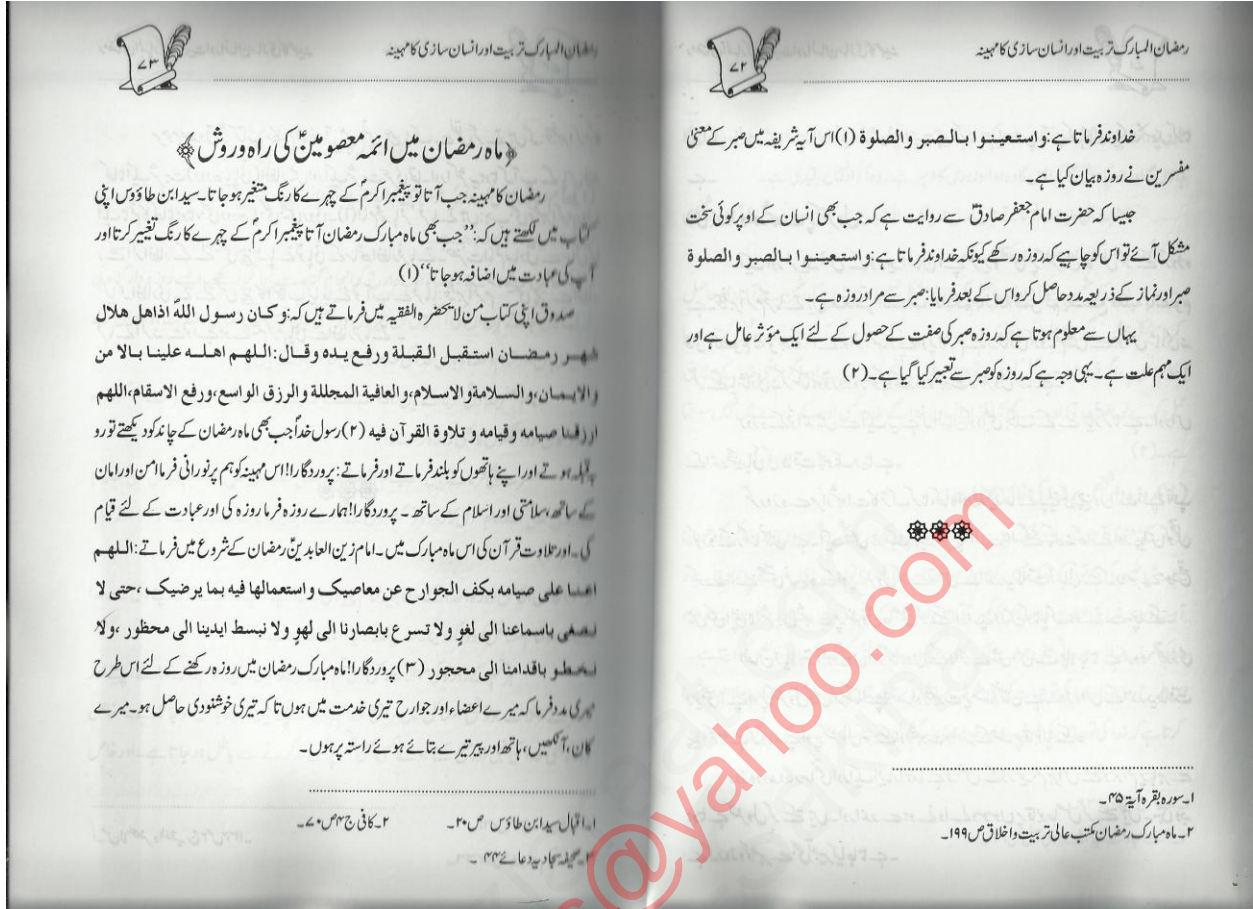 رمضان المبارک تربیت اور انسان سازی کا مہینہ
۷۲
خداوند فرماتا ہے: واستعینوا بالصبر والصلوة (۱) اس آیہ شریفہ میں صبر کے معنیٰ
مفسرین نے روزہ بیان کیا ہے۔
جیسا کہ حضرت امام جعفر صادقؑ سے روایت ہے کہ جب بھی انسان کے اوپر کوئی سخت
مشکل آئے تو اس کو چاہیے کہ روزہ رکھے کیونکہ خداوند فرماتا ہے: واستعینوا بالصبر والصلوة
صبر اور نماز کے ذریعہ مدد حاصل کرو اس کے بعد فرمایا: صبر سے مراد روزہ ہے۔
یہاں سے معلوم ہوتا ہے کہ روزہ صبر کی صفت کے حصول کے لئے ایک مؤثر عامل ہے اور
ایک مہم علت ہے۔ یہی وجہ ہے کہ روزہ کو صبر سے تعبیر کیا گیا ہے۔ (۲)
۱۔ سورہ بقرہ آیۃ ۴۵۔
۲۔ ماہ مبارک رمضان مکتب عالی تربیت و اخلاق ص ۱۹۹۔
رمضان المبارک تربیت اور انسان سازی کا مہینہ
۷۳
﴿ماہ رمضان میں ائمہ معصومینؑ کی راہ و روش﴾
رمضان کا مہینہ جب آتا تو پیغمبر اکرمؐ کے چہرے کا رنگ متغیر ہو جاتا۔ سید ابن طاؤوس اپنی
کتاب میں لکھتے ہیں کہ: ”جب بھی ماہ مبارک رمضان آتا پیغمبر اکرمؐ کے چہرے کا رنگ تغییر کرتا اور
آپ کی عبادت میں اضافہ ہو جاتا“ (۱)
صدوق اپنی کتاب من لا یحضرہ الفقیہ میں فرماتے ہیں کہ: وکان رسول اللہؐ اذاھل ھلال
شھر رمضان استقبل القبلة ورفع یدہ وقال: اللھم اھلہ علینا بالا من
والایمان، والسلامة والاسلام، والعافیة المجللة والرزق الواسع، ورفع الاسقام، اللھم
ارزقنا صیامہ وقیامہ و تلاوة القرآن فیہ (۲) رسول خداؐ جب بھی ماہ رمضان کے چاند کو دیکھتے تو رو
بقبلہ ہوتے اور اپنے ہاتھوں کو بلند فرماتے اور فرماتے: پروردگارا! اس مہینہ کو ہم پر نورانی فرما امن اور امان
کے ساتھ، سلامتی اور اسلام کے ساتھ۔ پروردگارا! ہمارے روزہ فرما روزہ کی اور عبادت کے لئے قیام
کی۔ اور تلاوت قرآن کی اس ماہ مبارک میں۔ امام زین العابدینؑ رمضان کے شروع میں فرماتے: اللھم
اعنا علی صیامہ بکف الجوارح عن معاصیک واستعمالھا فیہ بما یرضیک، حتی لا
نصغی باسماعنا الی لغوٍ ولا تسرع بابصارنا الی لھوٍ ولا نبسط ایدینا الی محظور، ولا
نخطو باقدامنا الی محجور (۳) پروردگارا! ماہ مبارک رمضان میں روزہ رکھنے کے لئے اس طرح
میری مدد فرما کہ میرے اعضاء اور جوارح تیری خدمت میں ہوں تا کہ تیری خوشنودی حاصل ہو۔ میرے
کان، آنکھیں، ہاتھ اور پیر تیرے بتائے ہوئے راستہ پر ہوں۔
۱۔ اقبال سید ابن طاؤس ص ۲۰۔ ۲۔ کافی ج ۴ ص ۷۰۔
۳۔ صحیفہ سجادیہ دعائے ۴۴۔
@yahoo.com